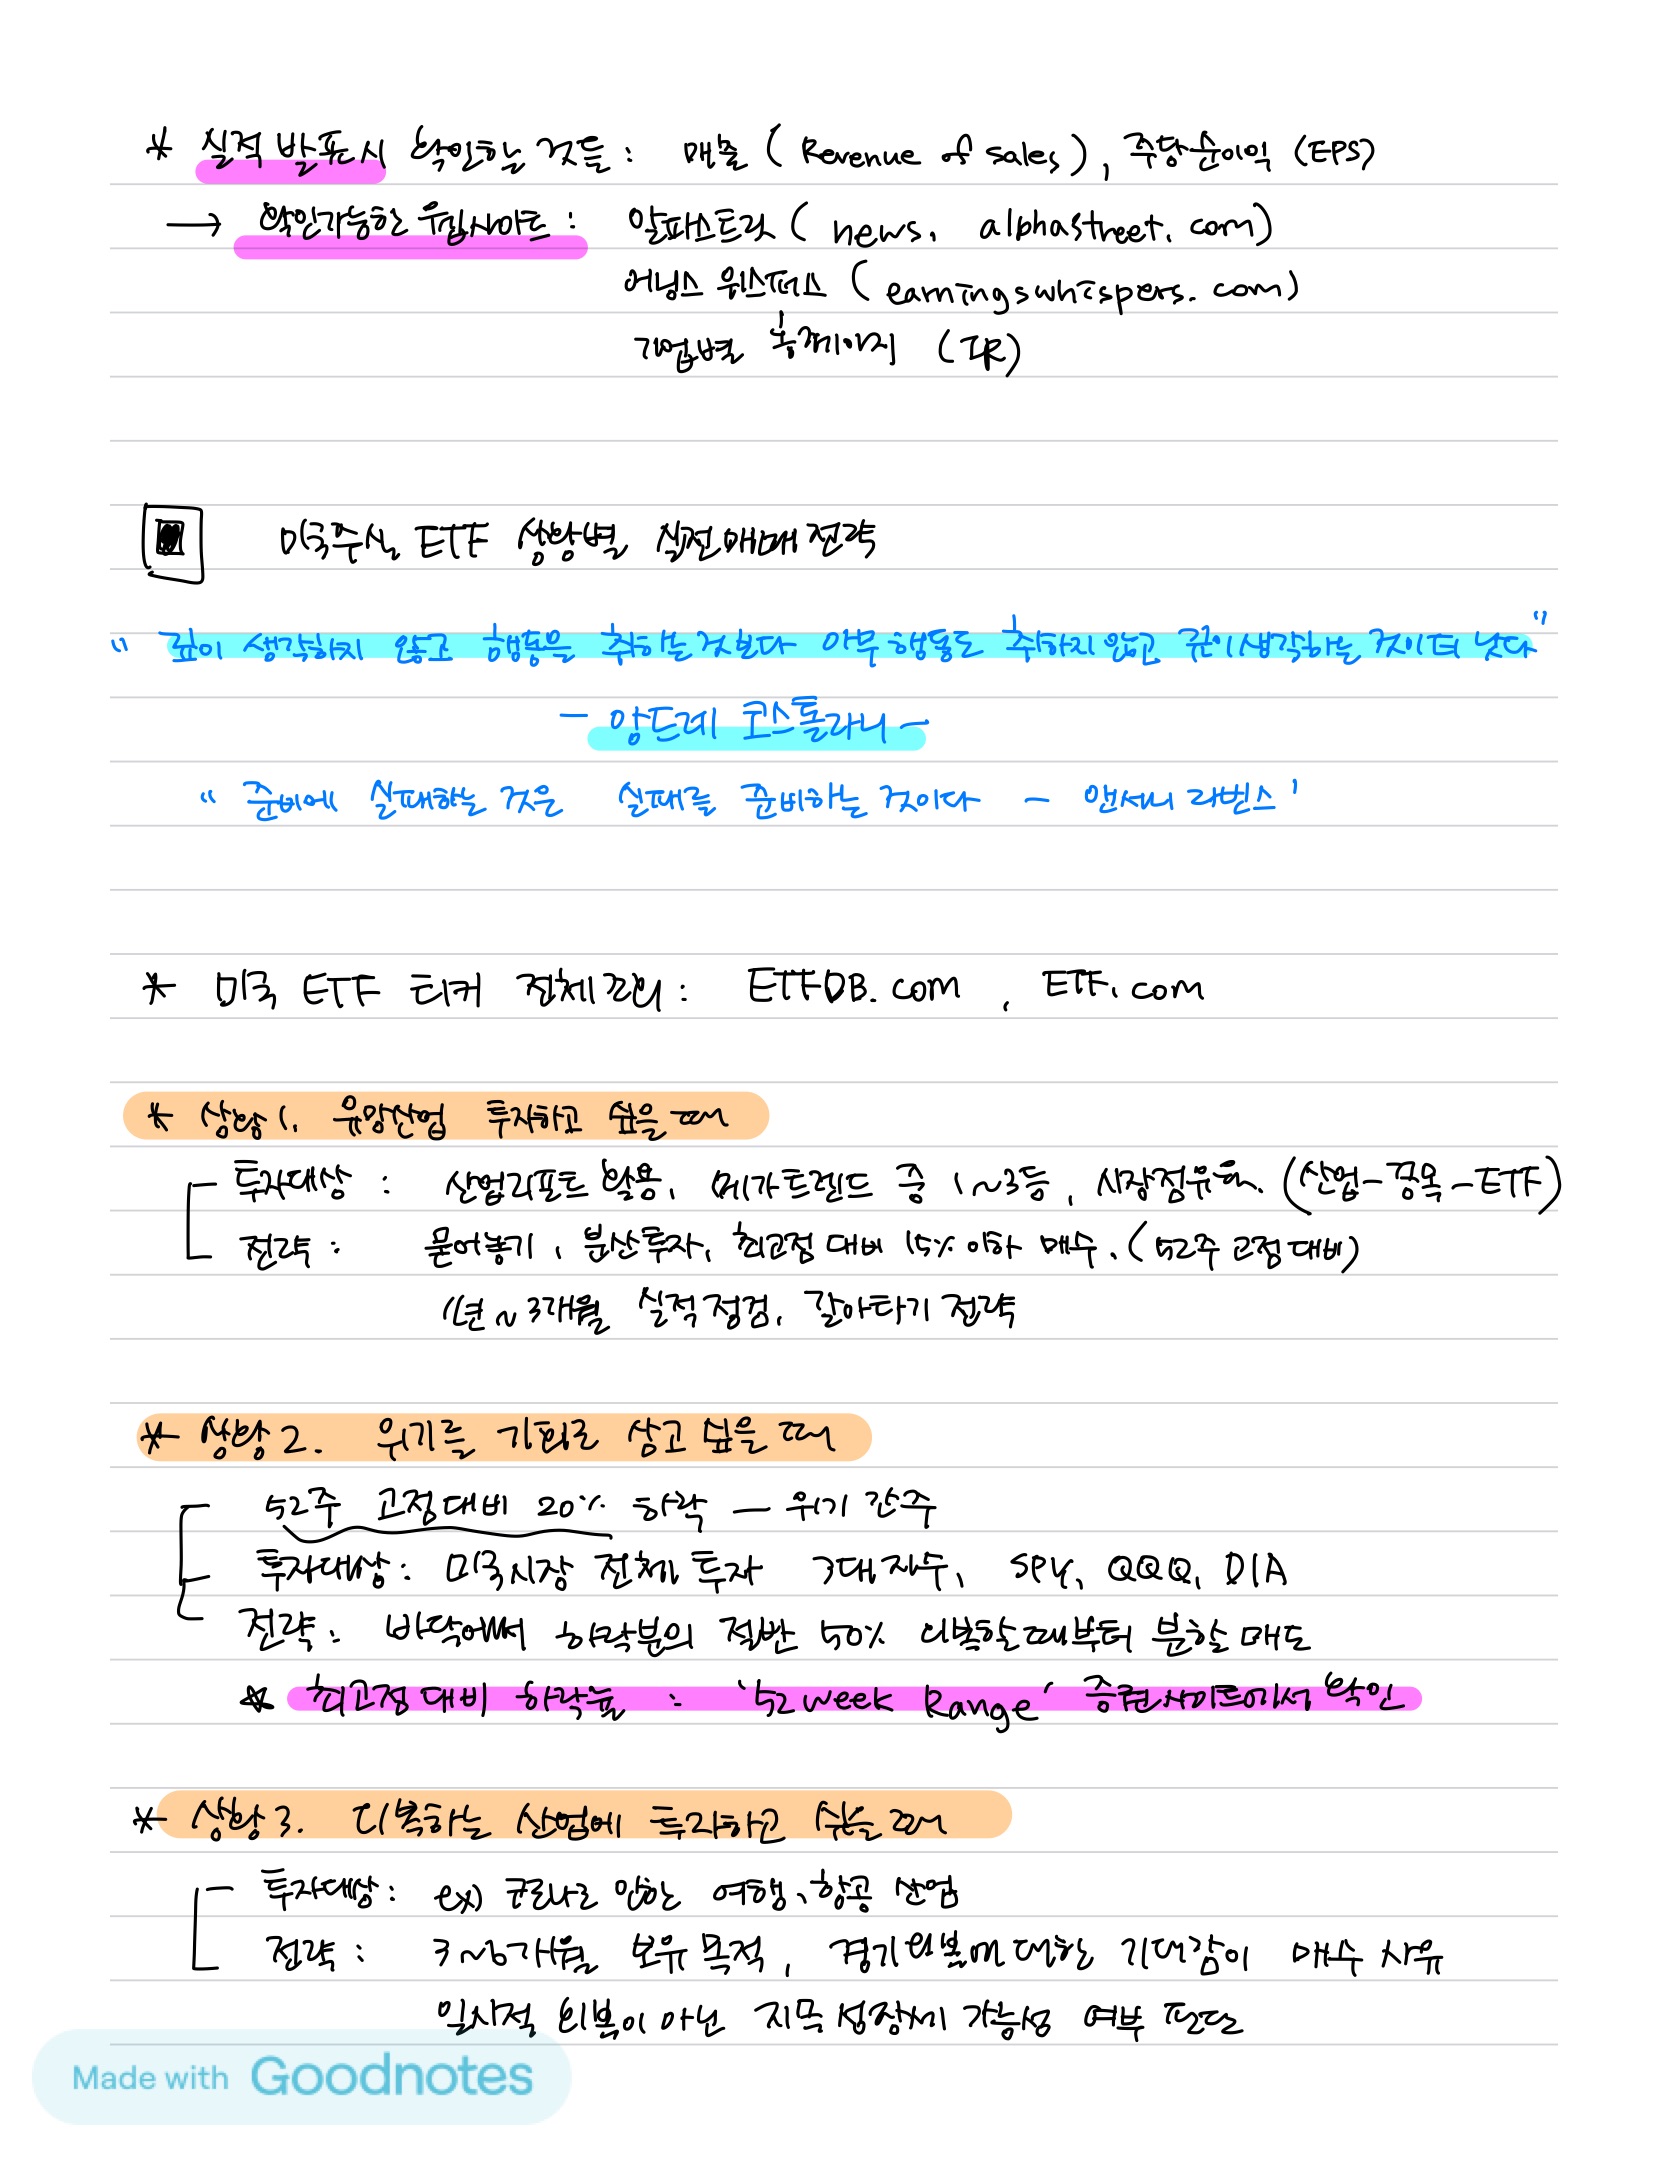 * 실적 발표시 확인할 것들 : 매출 ( Revenue of sales ) , 주당순이익 (EPS)
→ 확인가능한 웹사이트 : 알파스트릿 ( news. alphastreet. com )
어닝스 위스퍼스 ( earningswhispers. com )
기업별 홈페이지 (IR)
미국주식 ETF 상황별 실전매매 전략
" 깊이 생각하지 않고 행동을 취하는것보다 아무행동도 취하지않고 깊이생각하는 것이 더 낫다 "
- 앙드레 코스톨라니 -
" 준비에 실패하는 것은 실패를 준비하는 것이다 - 앤서니 라빈스 '
* 미국 ETF 티커 전체정리 : ETFDB. com , ETF. com
* 상황 1. 유망산업 투자하고 싶을 때
투자대상 : 산업리포트 활용, 메가트렌드 중 1~3등, 시장점유율. (산업-종목-ETF)
전략 : 묻어놓기, 분산투자, 최고점 대비 15% 이하 매수. (52주 고점대비)
1년~3개월 실적점검, 갈아타기 전략
* 상황 2. 위기를 기회로 삼고 싶을 때
52주 고점대비 20% 하락 - 위기 간주
투자대상 : 미국시장 전체 투자 3대지수, SPY, QQQ, DIA
전략 : 바닥에서 하락분의 절반 50% 회복할때부터 분할 매도
* 최고점 대비 하락율 : '52 week Range' 증권사이트에서 확인
* 상황 3. 회복하는 산업에 투자하고 싶을 때
투자대상 : ex) 코로나로 인한 여행, 항공 산업
전략 : 3~6개월 보유 목적, 경기회복에 대한 기대감이 매수 사유
일시적 회복이 아닌 지속 성장세 가능성 여부 판단
Made with Goodnotes